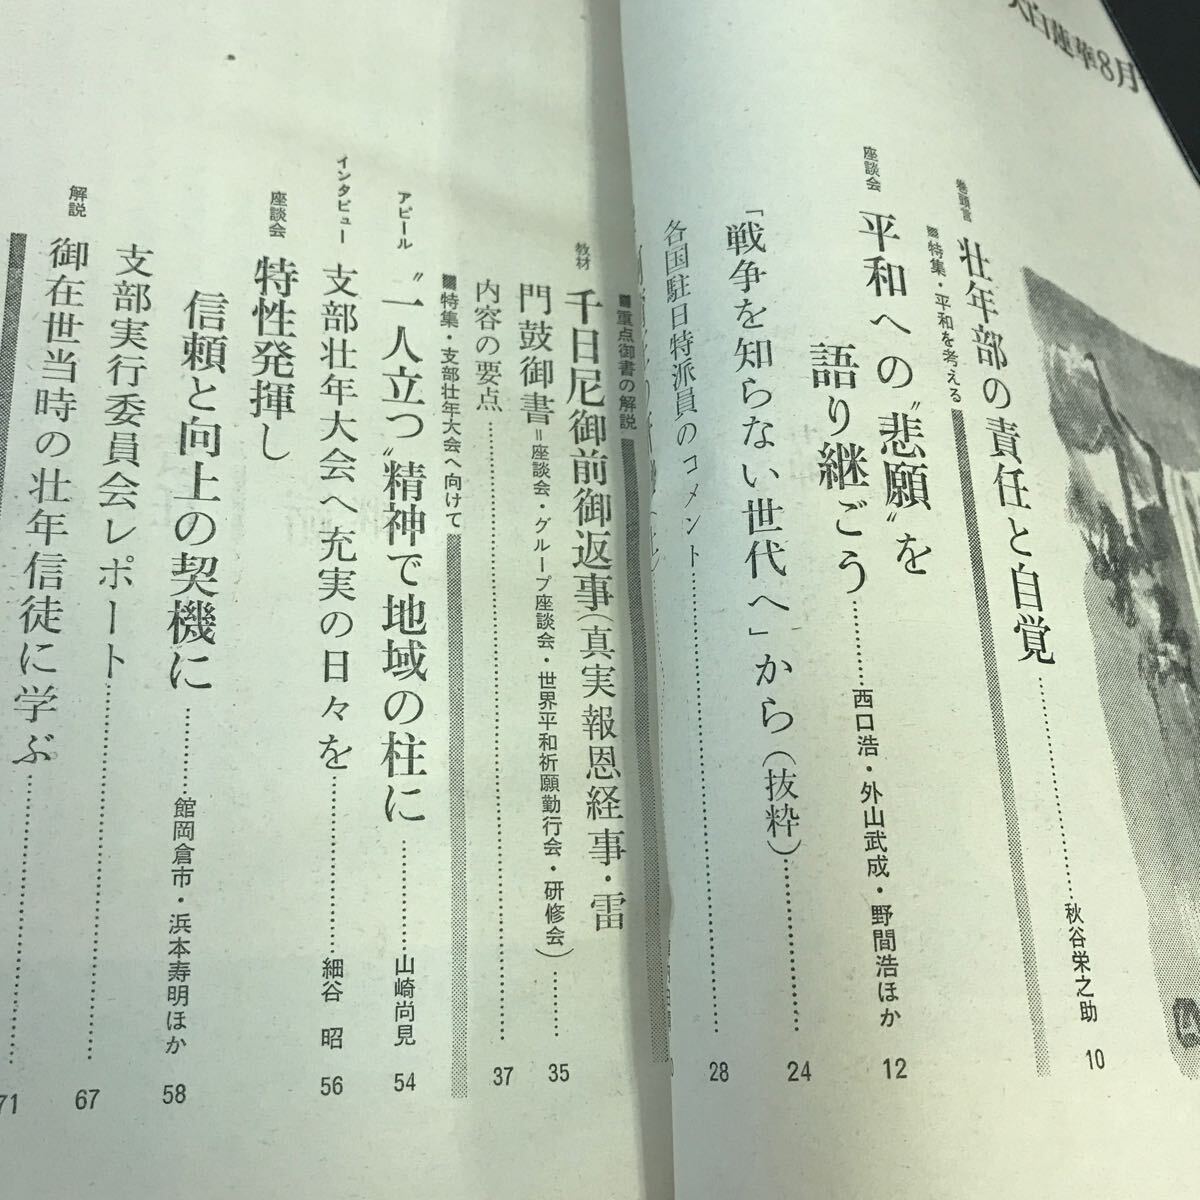 大白蓮華8月
巻頭言 壮年部の責任と自覚…………秋谷栄之助 10
■特集・平和を考える
座談会 平和への〝悲願〟を
語り継ごう…………西口浩・外山武成・野間浩ほか 12
「戦争を知らない世代へ」から(抜粋)………… 24
各国駐日特派員のコメント………… 28
■重点御書の解説
教材 千日尼御前御返事(真実報恩経事・雷
門鼓御書=座談会・グループ座談会・世界平和祈願勤行会・研修会)…… 35
内容の要点………… 37
■特集・支部壮年大会へ向けて
アピール 〝一人立つ〟精神で地域の柱に…………山崎尚見 54
インタビュー 支部壮年大会へ充実の日々を…………細谷 昭 56
座談会 特性発揮し
信頼と向上の契機に…………館岡倉市・浜本寿明ほか 58
支部実行委員会レポート………… 67
解説 御在世当時の壮年信徒に学ぶ………… 71